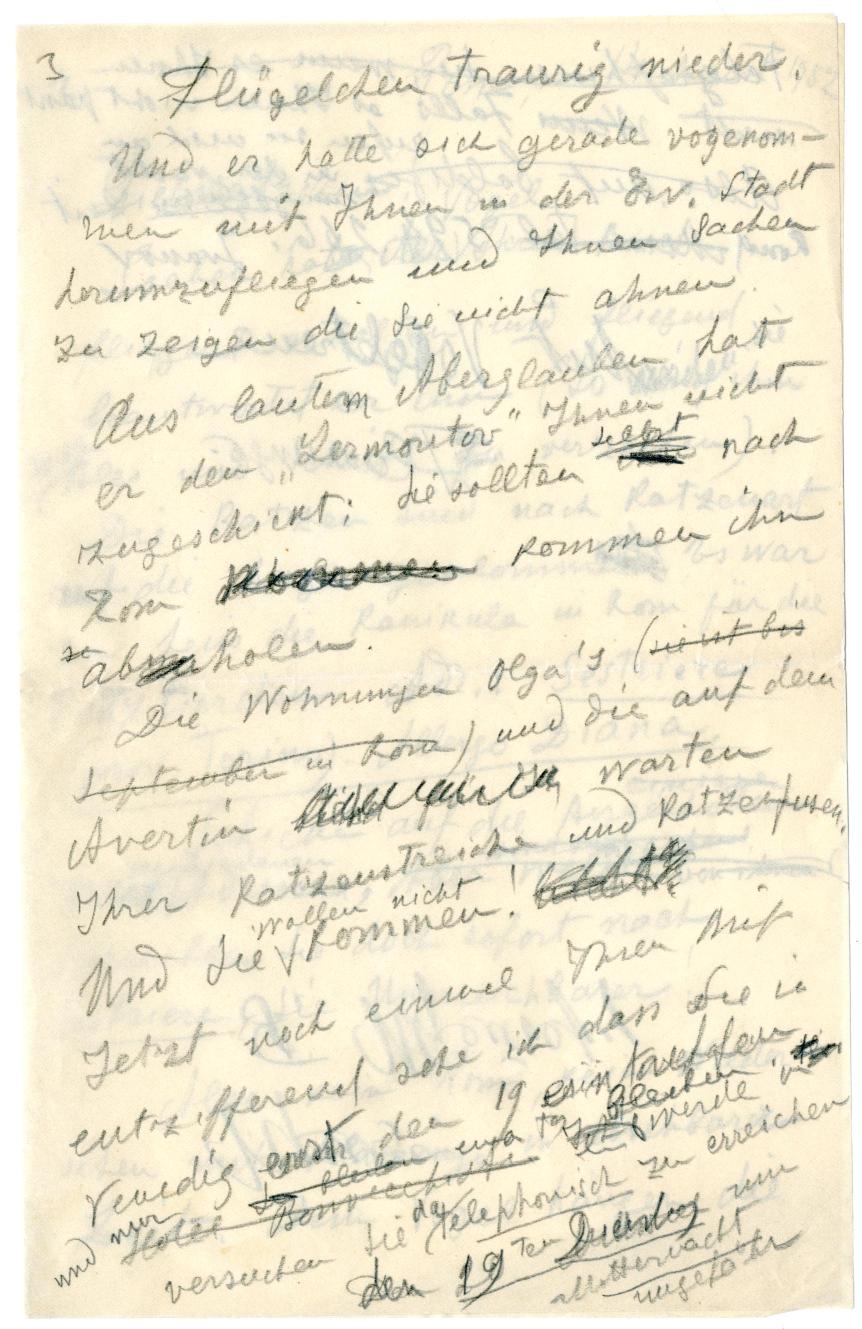 3
Flügelchen traurig nieder.
Und er hatte sich gerade vogenom-
men mit Ihnen in der Ew. Stadt
herumzufliegen und Ihnen Sachen
zu zeigen die Sie nicht ahnen
Aus lautem Aberglauben hat
er den „Lermontov" Ihnen nicht
zugeschickt: Sie sollten selbst nach
Rom kommen ihn
abzuholen.
Die Wohnungen Olga's (sie ist bis
September in Rom) und die auf dem
Avertin warten
Ihrer Katzenstreiche und Katzenfusen.
Und Sie wollen nicht kommen!
Jetzt noch einmal Ihren Brief
entzifferend sehe ich dass Sie in
Venedig erst den 19 eintreffen
und nur bleiben werde
Hotel
versuchen Sie da telephonisch zu erreichen
den 19ten Dienstag um
Mitternacht
ungefähr